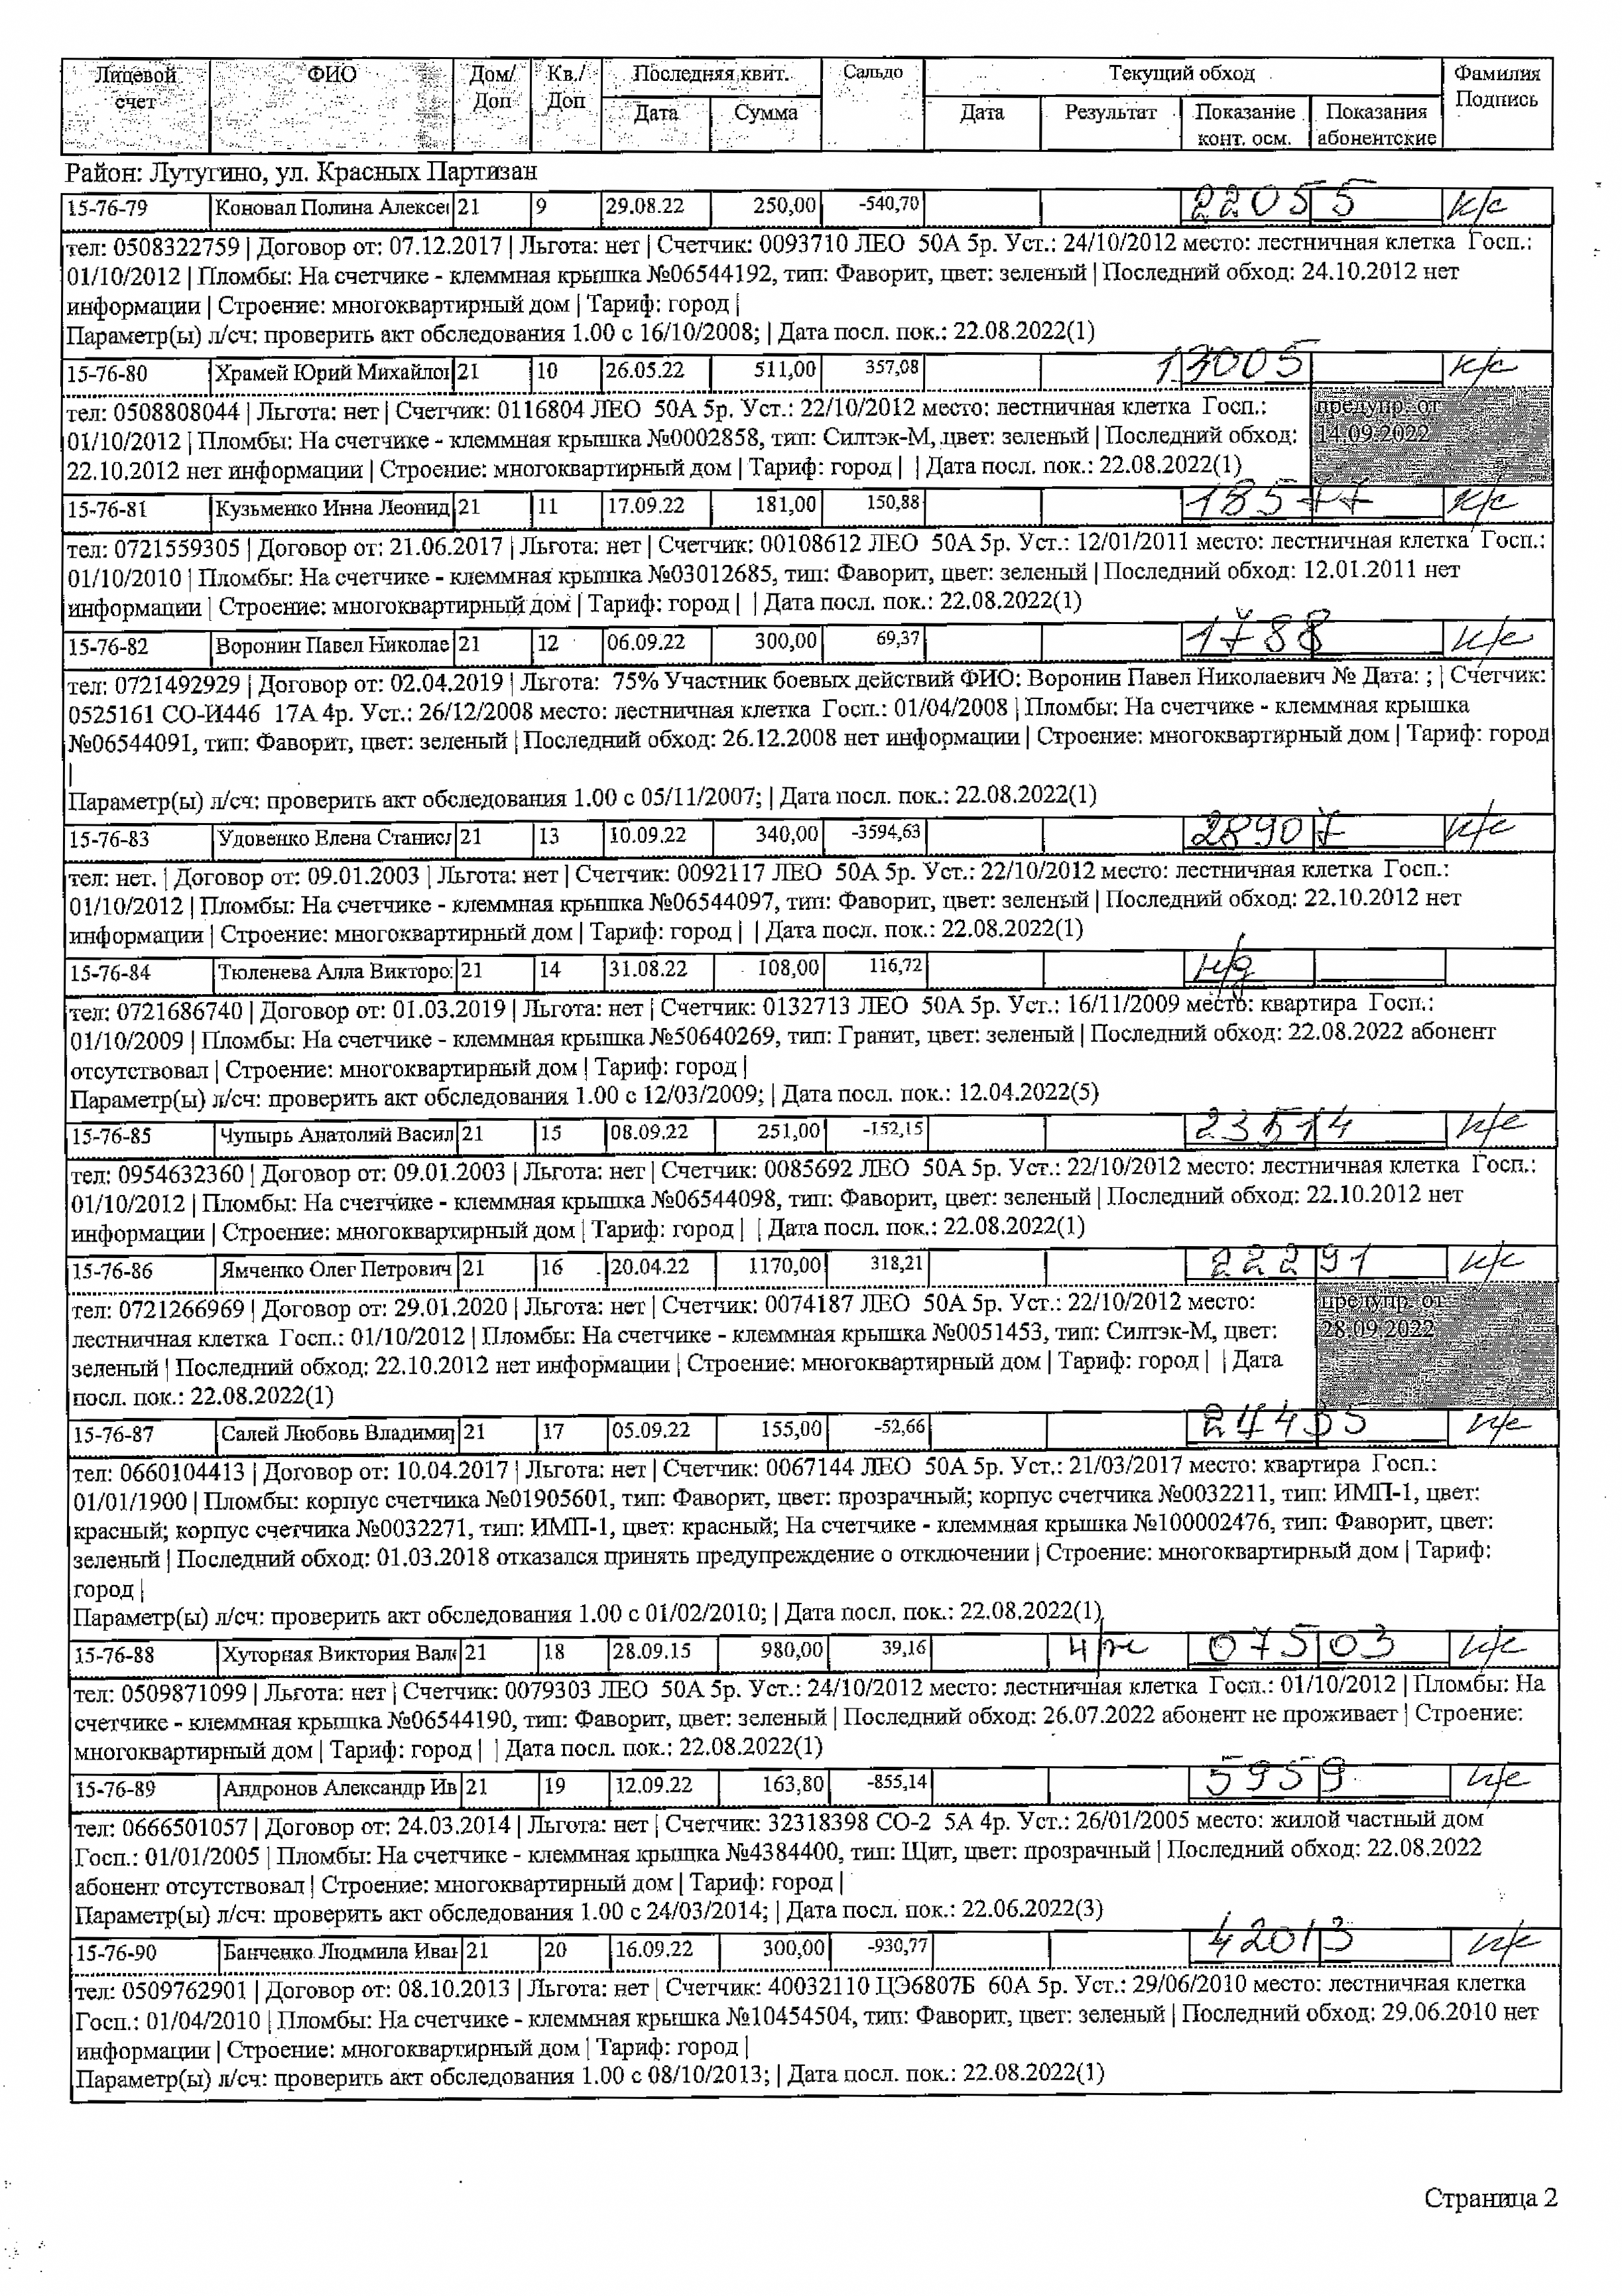 Лицевой счет | ФИО | Дом/ Доп | Кв./ Доп | Последняя квит. | Сальдо | Текущий обход | Фамилия Подпись
Дата | Сумма | Дата | Результат | Показание конт. осм. | Показания абонентские
Район: Лутугино, ул. Красных Партизан
15-76-79 Коновал Полина Алексе 21 9 29.08.22 250,00 -540,70 22055 к/с
тел: 0508322759 | Договор от: 07.12.2017 | Льгота: нет | Счетчик: 0093710 ЛЕО 50А 5р. Уст.: 24/10/2012 место: лестничная клетка Госп.:
01/10/2012 | Пломбы: На счетчике - клеммная крышка №06544192, тип: Фаворит, цвет: зеленый | Последний обход: 24.10.2012 нет
информации | Строение: многоквартирный дом | Тариф: город |
Параметр(ы) л/сч: проверить акт обследования 1.00 с 16/10/2008; | Дата посл. пок.: 22.08.2022(1)
15-76-80 Храмей Юрий Михайло 21 10 26.05.22 511,00 357,08 13005 к/с
тел: 0508808044 | Льгота: нет | Счетчик: 0116804 ЛЕО 50А 5р. Уст.: 22/10/2012 место: лестничная клетка Госп.:
01/10/2012 | Пломбы: На счетчике - клеммная крышка №0002858, тип: Силтэк-М, цвет: зеленый | Последний обход:
22.10.2012 нет информации | Строение: многоквартирный дом | Тариф: город | | Дата посл. пок.: 22.08.2022(1)
предупр. от
14.09.2022
15-76-81 Кузьменко Инна Леонид 21 11 17.09.22 181,00 150,88 18577 к/с
тел: 0721559305 | Договор от: 21.06.2017 | Льгота: нет | Счетчик: 00108612 ЛЕО 50А 5р. Уст.: 12/01/2011 место: лестничная клетка Госп.:
01/10/2010 | Пломбы: На счетчике - клеммная крышка №03012685, тип: Фаворит, цвет: зеленый | Последний обход: 12.01.2011 нет
информации | Строение: многоквартирный дом | Тариф: город | | Дата посл. пок.: 22.08.2022(1)
15-76-82 Воронин Павел Николае 21 12 06.09.22 300,00 69,37 1788 к/с
тел: 0721492929 | Договор от: 02.04.2019 | Льгота: 75% Участник боевых действий ФИО: Воронин Павел Николаевич № Дата: ; | Счетчик:
0525161 СО-И446 17А 4р. Уст.: 26/12/2008 место: лестничная клетка Госп.: 01/04/2008 | Пломбы: На счетчике - клеммная крышка
№06544091, тип: Фаворит, цвет: зеленый | Последний обход: 26.12.2008 нет информации | Строение: многоквартирный дом | Тариф: город
|
Параметр(ы) л/сч: проверить акт обследования 1.00 с 05/11/2007; | Дата посл. пок.: 22.08.2022(1)
15-76-83 Удовенко Елена Станис 21 13 10.09.22 340,00 -3594,63 28907 к/с
тел: нет. | Договор от: 09.01.2003 | Льгота: нет | Счетчик: 0092117 ЛЕО 50А 5р. Уст.: 22/10/2012 место: лестничная клетка Госп.:
01/10/2012 | Пломбы: На счетчике - клеммная крышка №06544097, тип: Фаворит, цвет: зеленый | Последний обход: 22.10.2012 нет
информации | Строение: многоквартирный дом | Тариф: город | | Дата посл. пок.: 22.08.2022(1)
15-76-84 Тюленева Алла Викторо 21 14 31.08.22 108,00 116,72 н/д
тел: 0721686740 | Договор от: 01.03.2019 | Льгота: нет | Счетчик: 0132713 ЛЕО 50А 5р. Уст.: 16/11/2009 место: квартира Госп.:
01/10/2009 | Пломбы: На счетчике - клеммная крышка №50640269, тип: Гранит, цвет: зеленый | Последний обход: 22.08.2022 абонент
отсутствовал | Строение: многоквартирный дом | Тариф: город |
Параметр(ы) л/сч: проверить акт обследования 1.00 с 12/03/2009; | Дата посл. пок.: 12.04.2022(5)
15-76-85 Чупырь Анатолий Васил 21 15 08.09.22 251,00 -152,15 23514 к/с
тел: 0954632360 | Договор от: 09.01.2003 | Льгота: нет | Счетчик: 0085692 ЛЕО 50А 5р. Уст.: 22/10/2012 место: лестничная клетка Госп.:
01/10/2012 | Пломбы: На счетчике - клеммная крышка №06544098, тип: Фаворит, цвет: зеленый | Последний обход: 22.10.2012 нет
информации | Строение: многоквартирный дом | Тариф: город | | Дата посл. пок.: 22.08.2022(1)
15-76-86 Ямченко Олег Петрович 21 16 20.04.22 1170,00 318,21 22291 к/с
тел: 0721266969 | Договор от: 29.01.2020 | Льгота: нет | Счетчик: 0074187 ЛЕО 50А 5р. Уст.: 22/10/2012 место:
лестничная клетка Госп.: 01/10/2012 | Пломбы: На счетчике - клеммная крышка №0051453, тип: Силтэк-М, цвет:
зеленый | Последний обход: 22.10.2012 нет информации | Строение: многоквартирный дом | Тариф: город | | Дата
посл. пок.: 22.08.2022(1)
предупр. от
28.09.2022
15-76-87 Салей Любовь Владими 21 17 05.09.22 155,00 -52,66 24435 к/с
тел: 0660104413 | Договор от: 10.04.2017 | Льгота: нет | Счетчик: 0067144 ЛЕО 50А 5р. Уст.: 21/03/2017 место: квартира Госп.:
01/01/1900 | Пломбы: корпус счетчика №01905601, тип: Фаворит, цвет: прозрачный; корпус счетчика №0032211, тип: ИМП-1, цвет:
красный; корпус счетчика №0032271, тип: ИМП-1, цвет: красный; На счетчике - клеммная крышка №100002476, тип: Фаворит, цвет:
зеленый | Последний обход: 01.03.2018 отказался принять предупреждение о отключении | Строение: многоквартирный дом | Тариф:
город |
Параметр(ы) л/сч: проверить акт обследования 1.00 с 01/02/2010; | Дата посл. пок.: 22.08.2022(1)
15-76-88 Хуторная Виктория Вал 21 18 28.09.15 980,00 39,16 07503 к/с
тел: 0509871099 | Льгота: нет | Счетчик: 0079303 ЛЕО 50А 5р. Уст.: 24/10/2012 место: лестничная клетка Госп.: 01/10/2012 | Пломбы: На
счетчике - клеммная крышка №06544190, тип: Фаворит, цвет: зеленый | Последний обход: 26.07.2022 абонент не проживает | Строение:
многоквартирный дом | Тариф: город | | Дата посл. пок.: 22.08.2022(1)
15-76-89 Андронов Александр Ив 21 19 12.09.22 163,80 -855,14 5959 к/с
тел: 0666501057 | Договор от: 24.03.2014 | Льгота: нет | Счетчик: 32318398 СО-2 5А 4р. Уст.: 26/01/2005 место: жилой частный дом
Госп.: 01/01/2005 | Пломбы: На счетчике - клеммная крышка №4384400, тип: Щит, цвет: прозрачный | Последний обход: 22.08.2022
абонент отсутствовал | Строение: многоквартирный дом | Тариф: город |
Параметр(ы) л/сч: проверить акт обследования 1.00 с 24/03/2014; | Дата посл. пок.: 22.06.2022(3)
15-76-90 Банченко Людмила Ива 21 20 16.09.22 300,00 -930,77 42013 к/с
тел: 0509762901 | Договор от: 08.10.2013 | Льгота: нет | Счетчик: 40032110 ЦЭ6807Б 60А 5р. Уст.: 29/06/2010 место: лестничная клетка
Госп.: 01/04/2010 | Пломбы: На счетчике - клеммная крышка №10454504, тип: Фаворит, цвет: зеленый | Последний обход: 29.06.2010 нет
информации | Строение: многоквартирный дом | Тариф: город |
Параметр(ы) л/сч: проверить акт обследования 1.00 с 08/10/2013; | Дата посл. пок.: 22.08.2022(1)
Страница 2